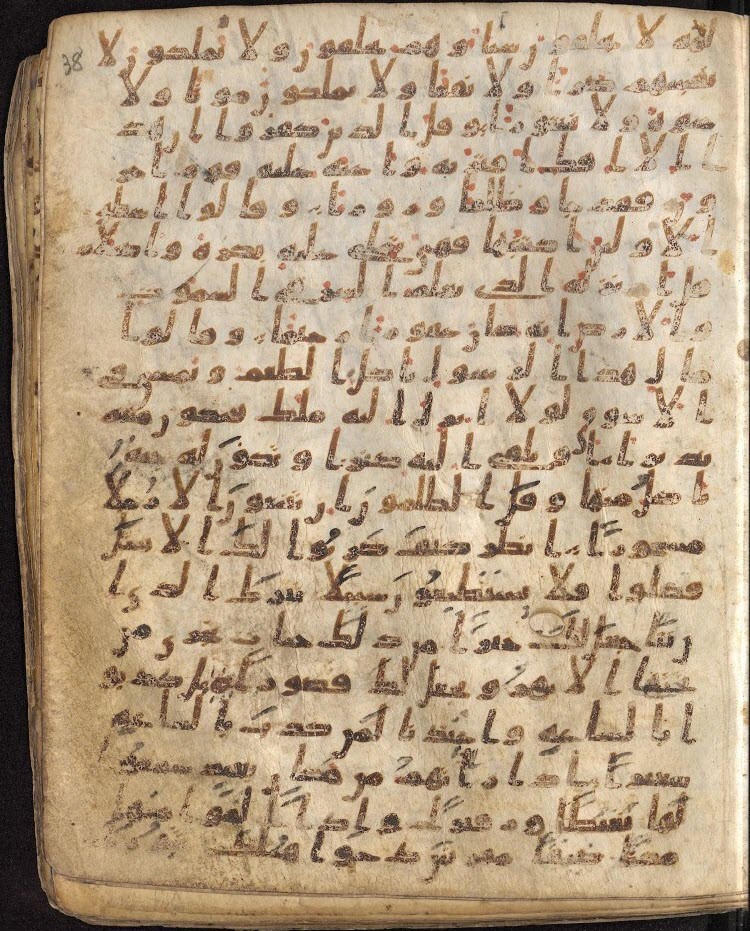 38
لهة لا يخلقون شيا وهم يخلقون ولا يملكون لا
نفسهم ضرا ولا نفعا ولا يملكون موتا ولا
حيوة ولا نشورا وقال الذين كفروا ان هذ
ا الا افك افتريه واعنه عليه قوم اخر
ون فقد جاو ظلما وزورا وقالوا اسطير
الاولين اكتتبها فهي تملى عليه بكرة واصيلا
قل انزله الذي يعلم السر في السموت
والارض انه كان غفورا رحيما وقالوا
مال هذا الرسول ياكل الطعم ويمشي في
الاسوق لولا انزل اليه ملك فيكون معه
نذيرا او يلقى اليه كنز او تكون له جنة
ياكل منها وقل الظلمون ان تتبعون الا رجلا
مسحورا انظر كيف ضربوا لك الامثل
فضلوا فلا يستطيعون سبيلا تبرك الذي ا
ن شا جعل لك خيرا من ذلك جنت تجري من
تحتها الانهر ويجعل لك قصورا بل كذبو
ا بالساعة واعتدنا لمن كذب بالساعة
سعيرا اذا راتهم من مكن بعيد سمعوا
لها تغيظا وزفيرا واذا القوا منها
مكنا ضيقا مقرنين دعوا هنلك